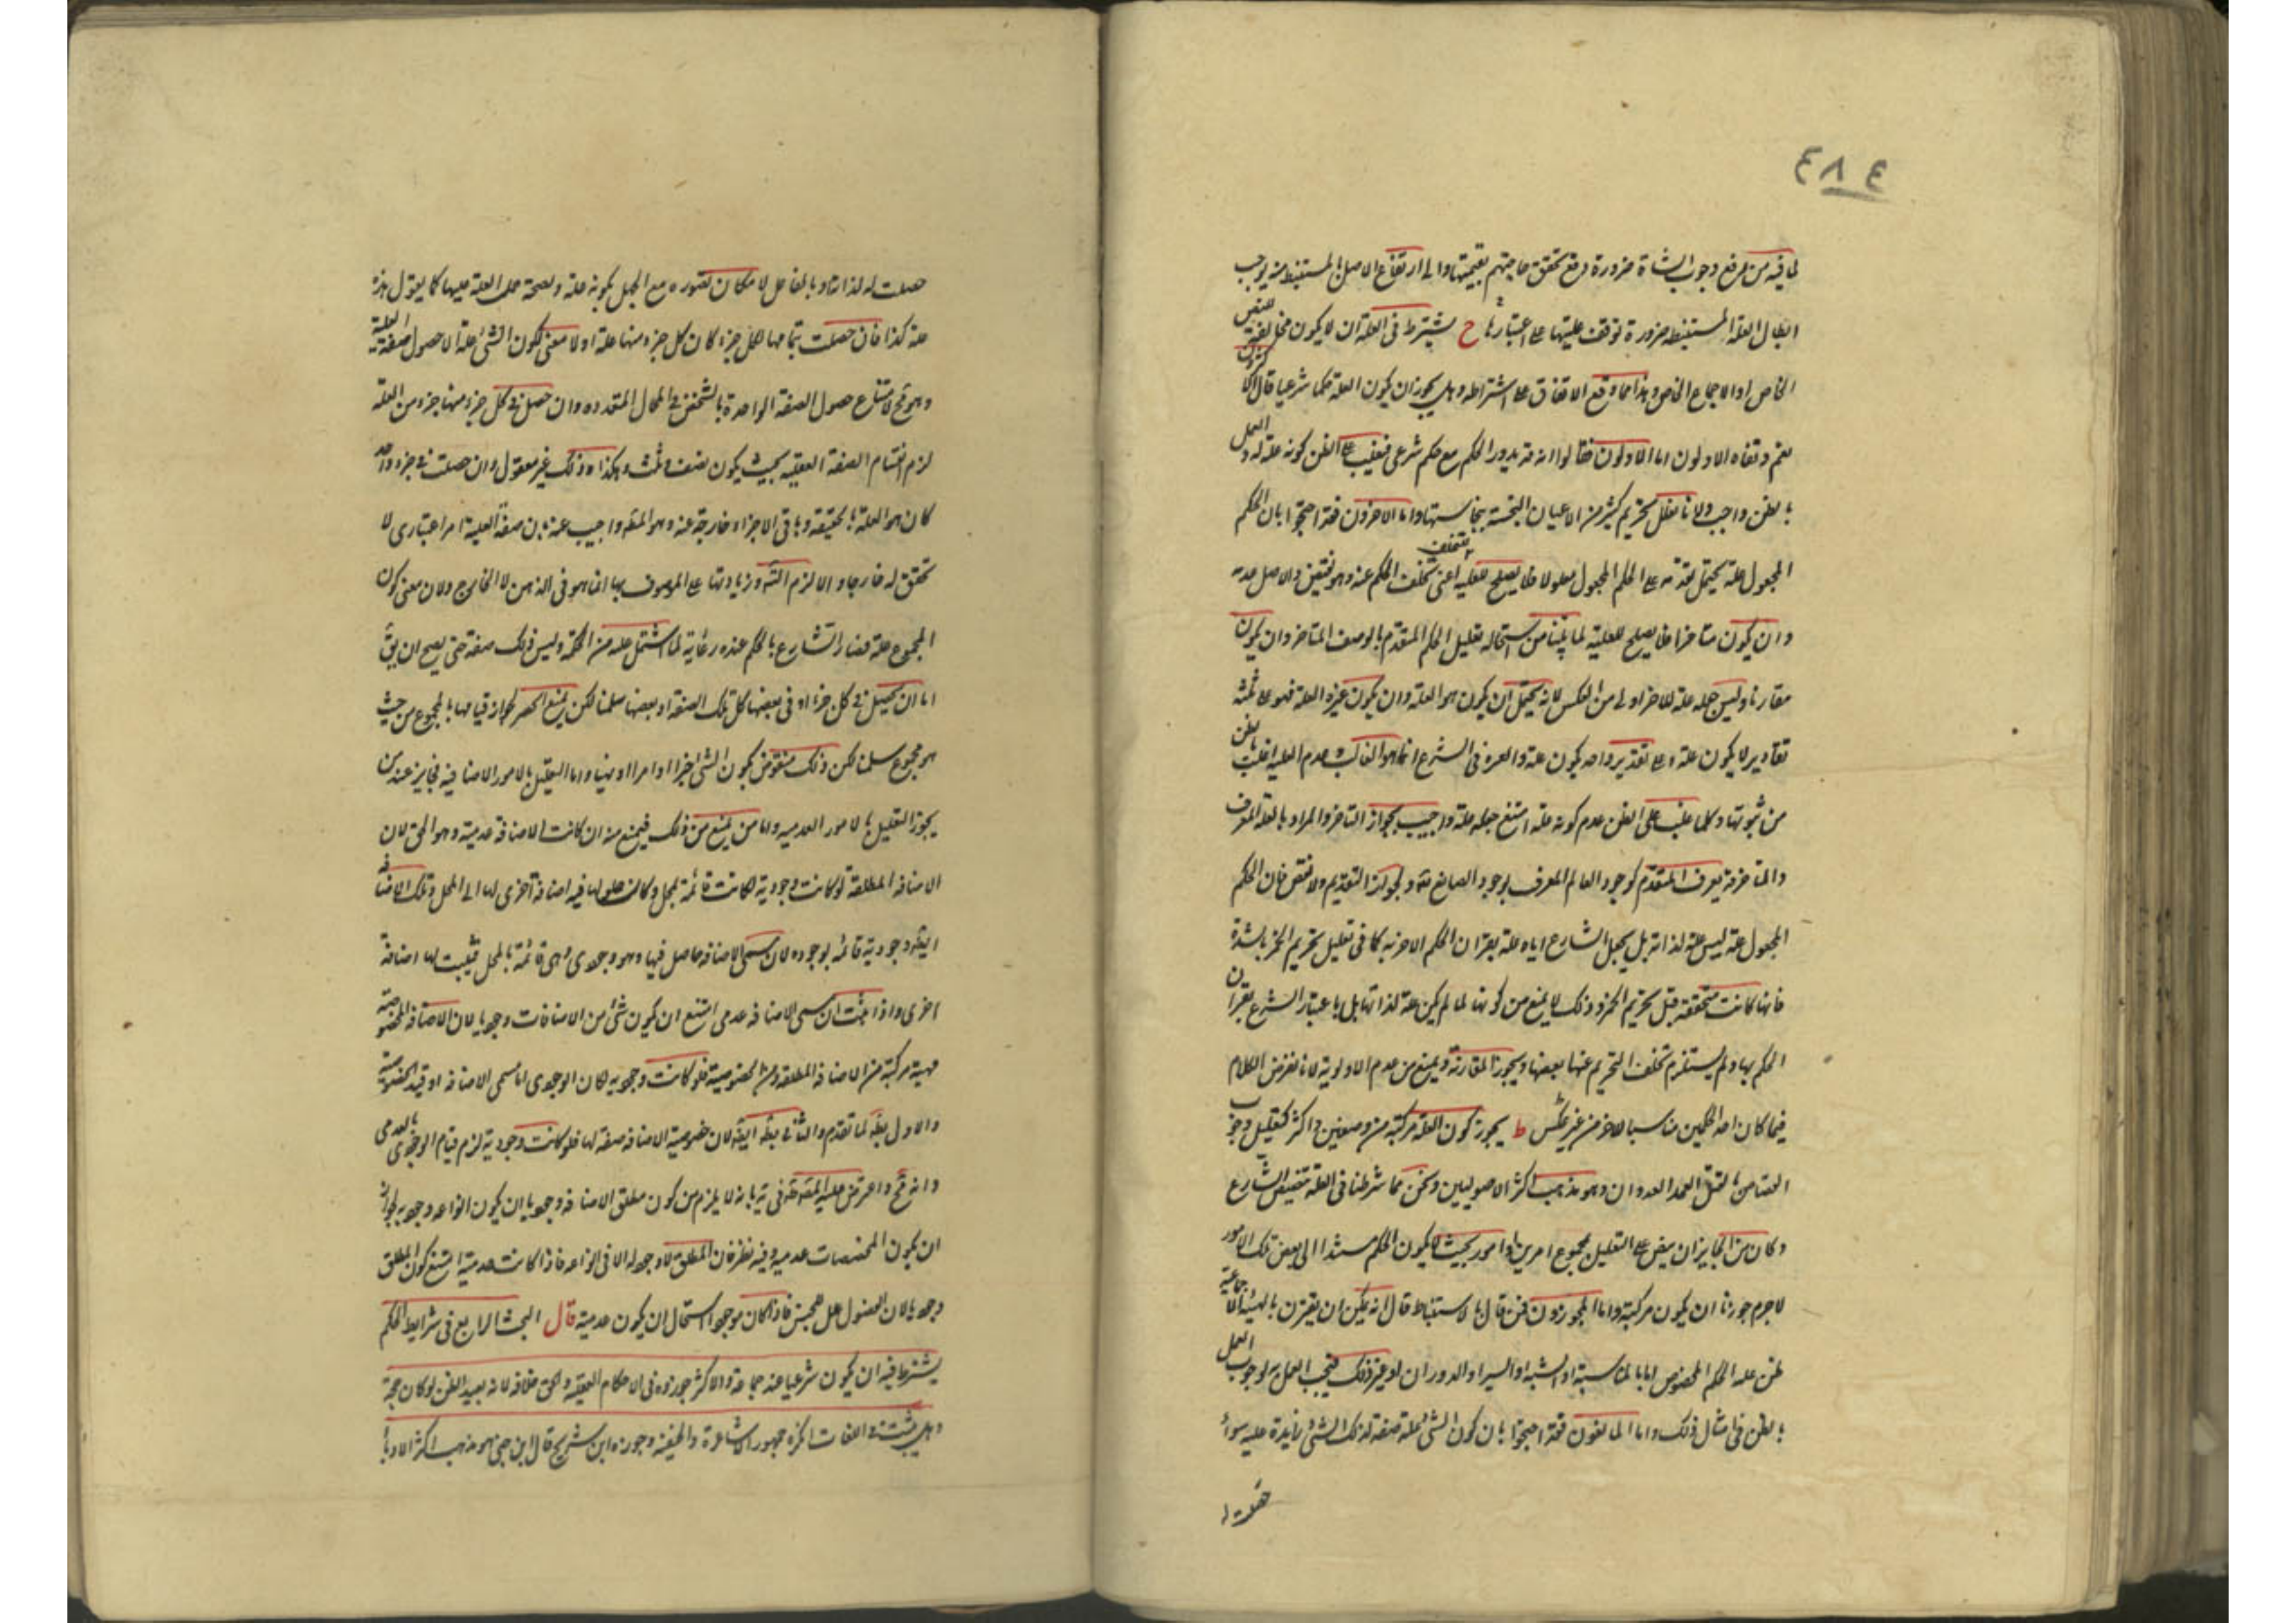 ٤٨٤
لما فيه من رفع وجوب الشاة ضرورة دفع تحقق حاجتهم بقيمتها والى ارتفاع الاصل المستنبط منه يوجب
ابطال العلة المستنبطة ضرورة توقف عليتها على اعتبارها ح يشترط في العلة ان لا يكون مخالفة للنص
الخاص او الاجماع الخاص وهذا مما وقع الاتفاق على اشتراطه وهل يجوز ان يكون العلة حكما شرعيا قال اكثرون
نعم ونفاه الاولون اما الاولون فقالوا انه قد يدور الحكم مع حكم شرعي فيغلب على الظن كونه علة له والعمل
بالظن واجب ولانا نعلل تحريم كثير من الاعيان النجسة بنجاستها واما الاخرون فقد احتجوا بان الحكم
المجعول علة يحتمل تقدمه على الحكم المجعول معلولا فلا يصلح للعلية اعني تخلف الحكم عنه وهو نقض والاصل عدمه
وان يكون متاخرا فلا يصلح للعلية لما بينا من استحالة تعليل الحكم المتقدم بالوصف المتاخر وان يكون
مقارنا وليس جعله علة للاخر اولى من العكس لانه يحتمل ان يكون هو العلة وان يكون غيره العلة فهو على ثلثة
تقادير لا يكون علة وعلى تقدير واحد يكون علة والعبرة في الشرع انما هو الغالب فعدم العلية اغلب بالظن
من ثبوتها وكلما غلب على الظن عدم كونه علة امتنع جعله علة واجيب بجواز التاخر والمراد بالعلة المعرف
والمتاخر قد يعرف المتقدم كوجود العالم المعرف لوجود الصانع تعالى وبجواز التقديم ولا نقض فان الحكم
المجعول علة ليس علة لذاته بل بجعل الشارع اياه علة بقران الحكم الاخر به كما في تعليل تحريم الخمر بالشدة
فانها كانت متحققة قبل تحريم الخمر وذلك لا يمنع من كونها لما لم يكن علة لذاتها بل باعتبار الشرع بقران
الحكم بها ولم يستلزم تخلف التحريم عنها بعضها ويجوز المقارنة ويمنع من عدم الاولوية لانا نفرض الكلام
فيما كان احد الحكمين مناسبا للاخر من غير عكس ط يجوز كون العلة مركبة من وصفين واكثر كتعليل وجوب
القصاص بالقتل العمد العدوان وهو مذهب اكثر الاصوليين ونحن مما شرطنا في العلة تنصيص الشارع
وكان من الجايز ان ينص على التعليل بمجموع امرين او امور بحيث لا يكون الحكم مستندا الى بعض تلك الامور
لا جرم جوزنا ان يكون مركبة واما المجوزون فمن قال بالاستنباط قال انه يمكن ان يقترن بالهيئة الاجتماعية
ظن علة الحكم المخصوص اما بالمناسبة او الشبه او السبر او الدوران او غير ذلك فيجب العمل به لوجوب العمل
بالظن في امثال ذلك واما المانعون فقد احتجوا بان كون الشئ علة صفة لذلك الشئ زايدة عليه سواء
حصلت له لذاته او بالفاعل لا مكان تصوره مع الجهل بكونه علة ولصحة حمل العلة عليها كما يقول هذه
علة كذا فان حصلت بتمامها لكل جزء كان كل جزء منها علة اذ لا معنى لكون الشئ علة الا حصول صفة العلية له
وهو مح لامتناع حصول الصفة الواحدة بالشخص في المحال المتعددة وان حصل في كل جزء منها جزء من العلة
لزم انقسام الصفة العقلية بحيث يكون نصف وثلث وهكذا وذلك غير معقول وان حصلت في جزء واحد
كان هو العلة بالحقيقة وباقي الاجزاء خارجة عنه وهو المط واجيب عنه بان صفة العلية امر اعتباري لا
تحقق له خارجا والا لزم التسلسل وزيادتها على الموصوف بها انما هو في الذهن لا الخارج ولان معنى كون
المجموع علة قضاء الشارع بالحكم عنده رعاية لما اشتمل عليه من الحكمة وليس ذلك صفة حتى يصح ان يق
اما ان يحصل في كل جزء او في بعضها كل تلك الصفة او بعضها سلمنا لكن يمنع الحصر لجواز قيامها بالمجموع من حيث
هو مجموع سلمنا لكن ذلك منقوض بكون الشئ خبرا او امرا او نهيا واما التعليل بالامور الاضافية فجايز عند من
يجوز التعليل بالامور العدمية واما من يمنع من ذلك فيمنع منه ان كانت الاضافة عدمية وهو الحق لان
الاضافة المطلقة لو كانت وجودية لكانت قائمة بمحل وكان حلولها فيه اضافة اخرى لها الى المحل وتلك الاضافة
ايضا وجودية قائمة بوجوده لان مسمى الاضافة حاصل فيها وهو وجودي وهي قائمة بالمحل فيثبت لها اضافة
اخرى واذا ثبت ان مسمى الاضافة عدمي امتنع ان يكون شئ من الاضافات وجوديا لان الاضافة المخصوصة
مهية مركبة من الاضافة المطلقة ومن الخصوصية فلو كانت وجودية لكان الوجودي اما مسمى الاضافة او قيد الخصوصية
والاول بط لما تقدم والثاني بط ايضا لان خصوصية الاضافة صفة لها فلو كانت وجودية لزم قيام الوجودي بالعدمي
وانه مح واعترض عليه المص في يه بانه لا يلزم من كون مطلق الاضافة وجوديا ان يكون انواعه وجودية لجواز
ان يكون المخصصات عدمية وفيه نظر فان المطلق لا وجود له الا في انواعه فاذا كانت عدمية امتنع كون المطلق
وجوديا لان الفصول علل للجنس فاذا كان موجودا استحال ان يكون عدمية قال البحث الرابع في شرايط الحكم
يشترط فيه ان يكون شرعيا عند جماعة والاكثر جوزوه في الاحكام العقلية والحق خلافه لانه يفيد الظن لو كان حجة
وهل يثبت في اللغات انكره جمهور الاشاعرة والحنفية وجوزه ابن سريج قال ابن جني هو مذهب اكثر الادباء